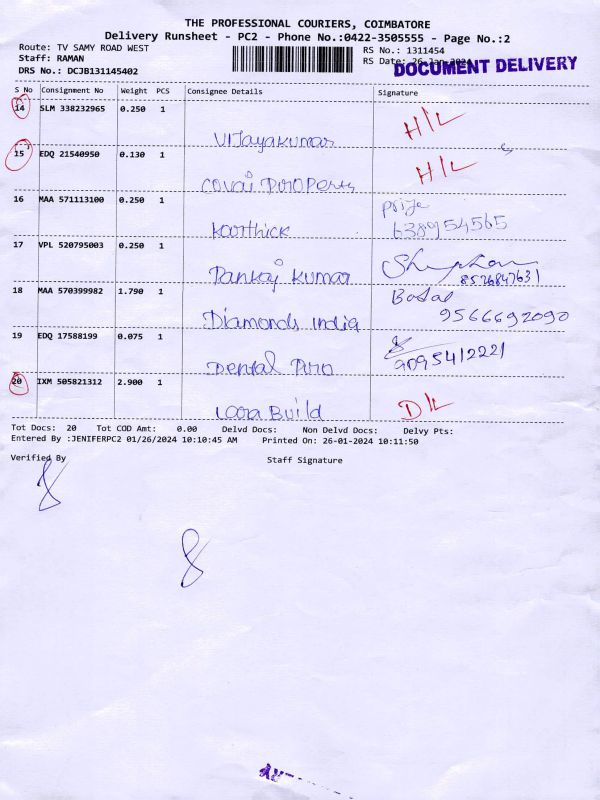 THE PROFESSIONAL COURIERS, COIMBATORE
Delivery Runsheet - PC2 - Phone No.:0422-3505555 - Page No.:2
Route: TV SAMY ROAD WEST
RS No.: 1311454
Staff: RAMAN
RS Date: 26-Jan-2024
DRS No.: DCJB131145402
DOCUMENT DELIVERY
S No Consignment No Weight PCS Consignee Details Signature
14 SLM 338232965 0.250 1
H/L
Vijayakumar
15 EDQ 21540950 0.130 1
H/L
covai
16 MAA 571113100 0.250 1
Karthick
17 VPL 520795003 0.250 1
Pankaj kumar
8526847631
18 MAA 570399982 1.790 1
Diamonds india
9566692090
19 EDQ 17588199 0.075 1
9095412221
Dental Puro
20 IXM 505821312 2.900 1
D/L
Build
Tot Docs: 20 Tot COD Amt: 0.00 Delvd Docs: Non Delvd Docs: Delvy Pts:
Entered By :JENIFERPC2 01/26/2024 10:10:45 AM Printed On: 26-01-2024 10:11:50
Verified By Staff Signature